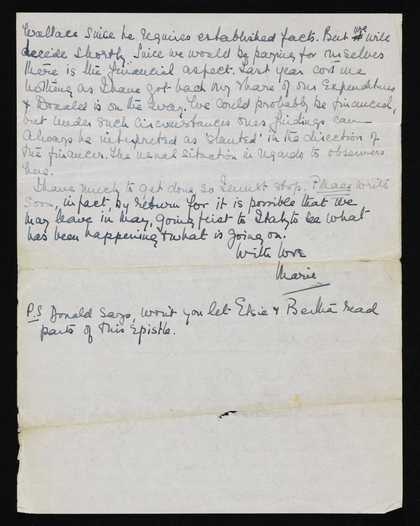 Wallace since he requires established facts. But we will
decide shortly. Since we would be paying for ourselves
there is the financial aspect. Last year cost me
nothing as I have got back my share of our Expenditure
& Donald is on the way. We could probably be financed,
but under such circumstances ones findings can
always be interpreted as 'slanted' in the direction of
the financer. The usual situation in regards to observers
here.
I have much to get done so I must stop. Please write
soon, in fact by return for it is possible that we
may leave in May, going first to Italy to see what
has been happening & what is going on.
With love
Marie
P.S Donald says, won't you let Elsie & Bertha read
parts of this Epistle.